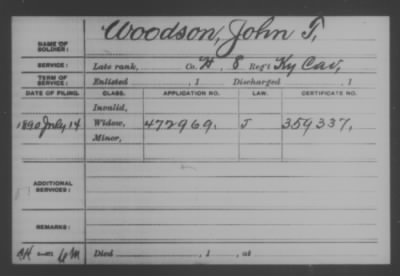 Woodson, John T,
NAME OF SOLDIER:
SERVICE: Late rank, Co. H, 8 Reg't Ky Cav,
TERM OF SERVICE: Enlisted , 1 Discharged , 1
DATE OF FILING. CLASS. APPLICATION NO. LAW. CERTIFICATE NO.
Invalid,
1890 July 14 Widow, 472969. J 359337,
Minor,
ADDITIONAL SERVICES:
REMARKS:
Died , 1 , at